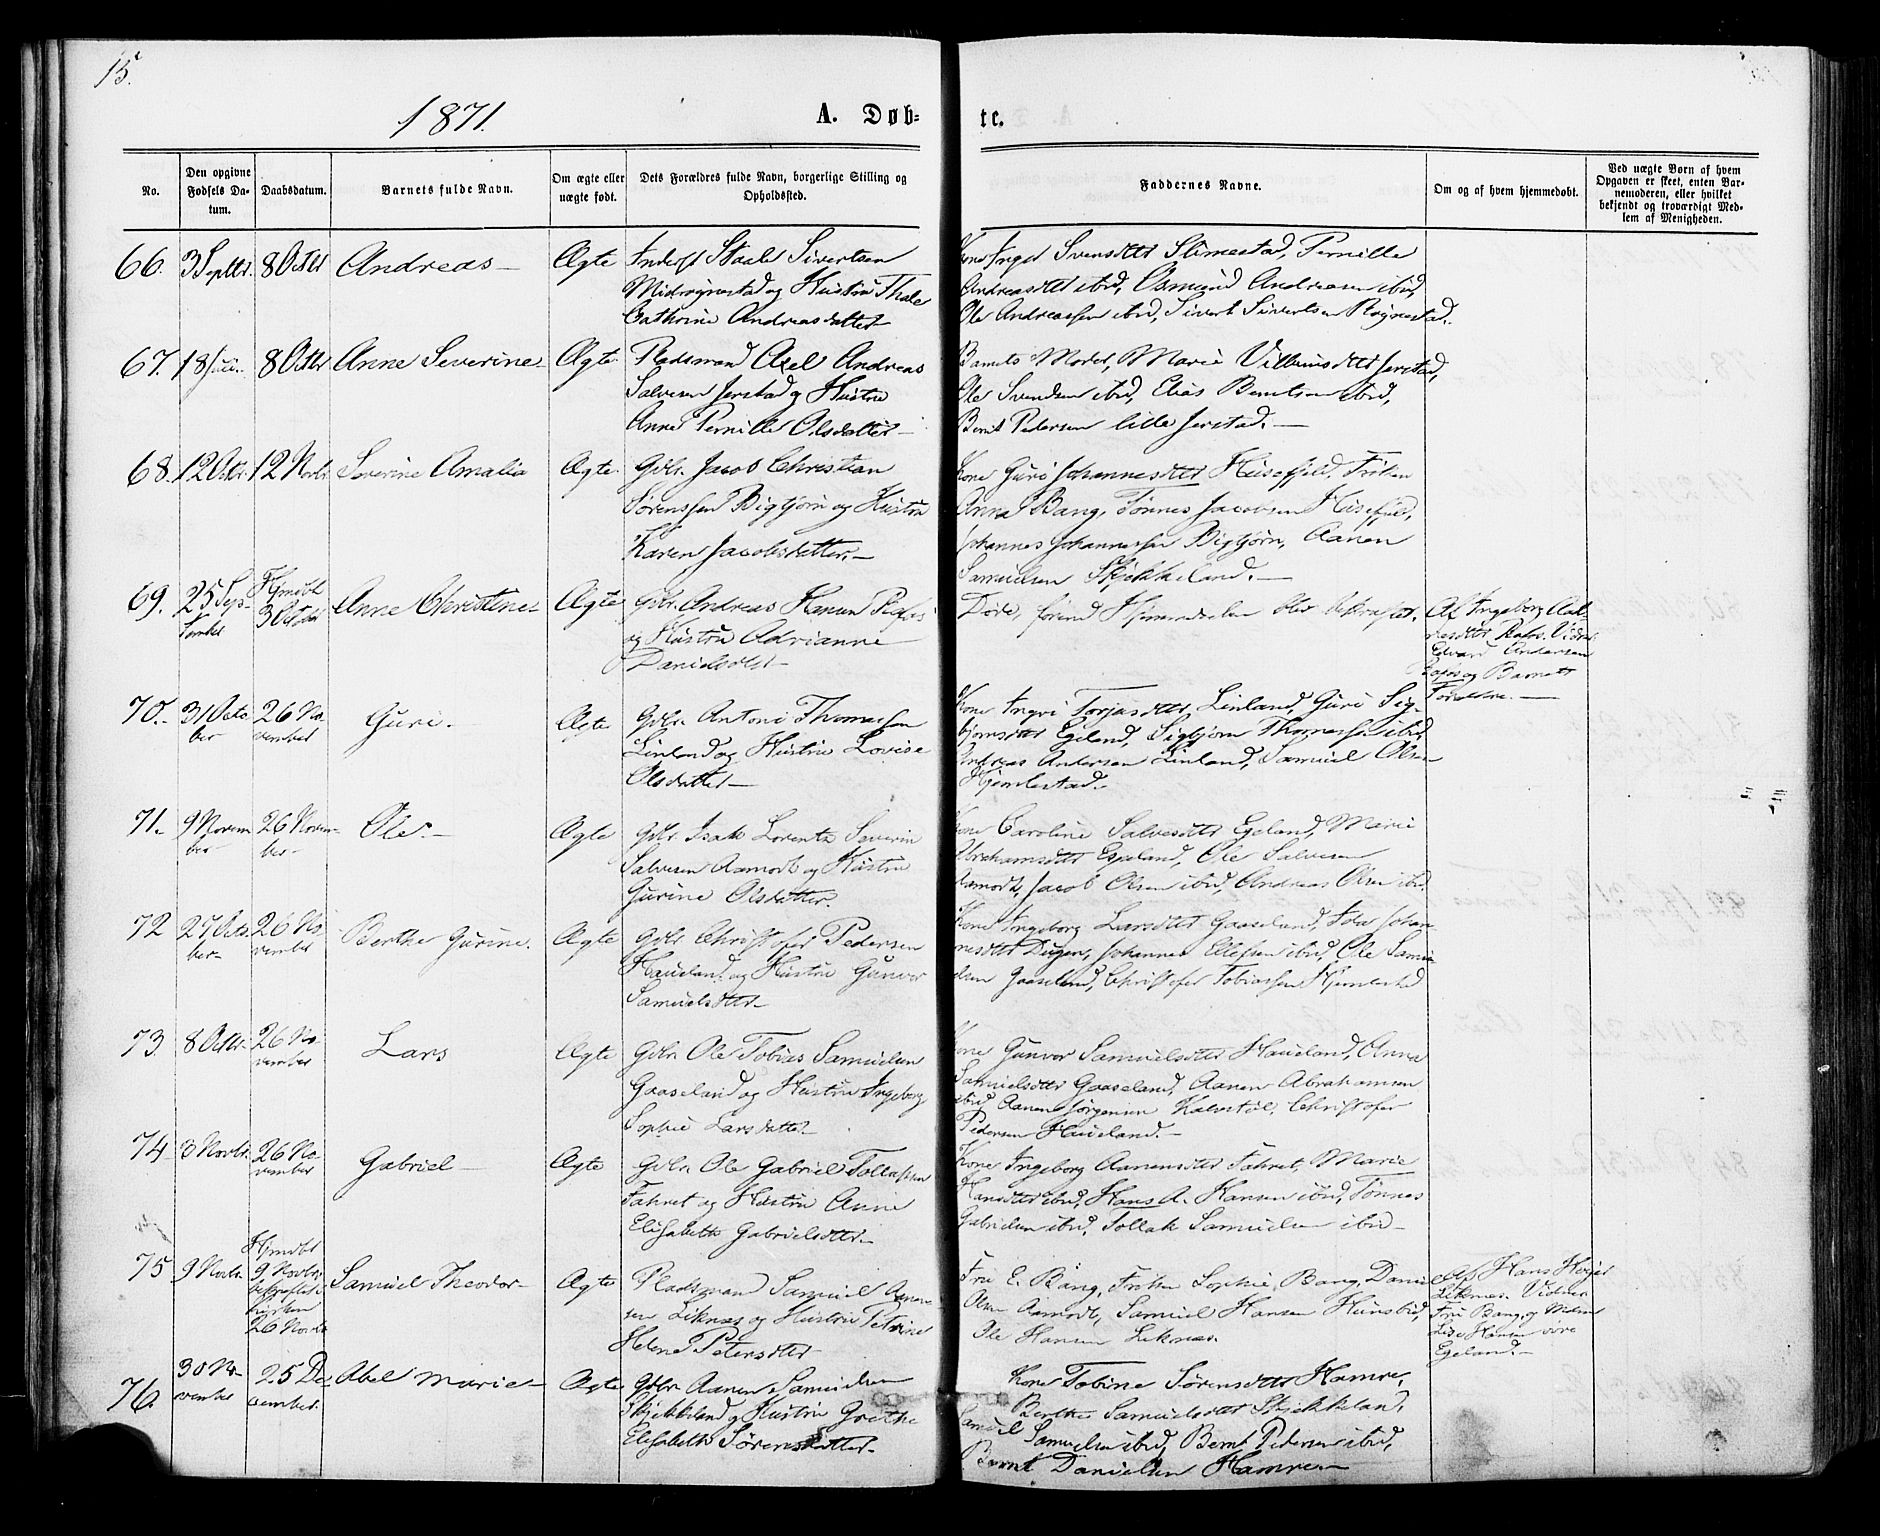 15.
1871.
A. Døb-
te.
No.
Den opgivne Fødsels Da-
tum.
Daabsdatum.
Barnets fulde Navn.
Om ægte eller
uægte født.
Dets Forældres fulde Navn, borgerlige Stilling og
Opholdssted.
Faddernes Navne.
Om og af hvem hjemmedøbt.
Ved uægte Børn af hvem
Opgaven er skeet, enten Bar-
nemoderen, eller hvilket
bekjendt og troværdigt Med-
lem af Menigheden.
66. 3 Septbr. 8 Octbr Andreas Ægte
Inderst Staale Sivertsen
Midrøgnestad og Hustru Thale
Cathrine Andreasdatter
Kone Inger Svensdttr Slimestad, Pernille
Andreasdttr ibid, Osmund Andreasen ibid,
Ole Andreassen ibid, Sivert Sivertsen Røgnestad.
67. 18 8 Octbr Anne Severine Ægte
Pladsmand Axel Andreas
Salvesen Jerstad og Hustru
Anne Pernille Olsdatter
Barnets Moder, Marie Villumsdttr Jerstad,
Ole Svendsen ibid, Elias Berntsen ibid,
Bernt Pedersen lille Jerstad.
68. 12 Octbr. 12 Novbr Severine Amalia Ægte
Gdbr. Jacob Christian
Sørenssen Bigtjørn og Hustru
Karen Jacobsdatter.
Kone Guri Johannesdttr Husefjeld, Frøken
Anna Bang, Tønnes Jacobsen Husefjeld,
Johannes Johannessen Bigtjørn, Aanen
Samuelsen Skjekkeland.
69. 25 Sep-
tember
Hjmdbt
3 October
Anne Christine Ægte
Gdbr. Andreas Hansen
og Hustru Adrianne
Danielsdttr
Døde, førend Hjemmedaaben blev bekræftet.
Af Ingeborg
Vidner
Edvard Andersen
og Barnets
Forældre.
70. 31 Octo-
ber
26 No-
vember
Guri. Ægte
Gdbr. Antoni Thomassen
Linland og Hustru Lovise
Olsdatter
Kone Ingri Torjusdttr, Linland, Guri Sig-
bjørnsdttr Egeland, Sigbjørn Thomassen ibid,
Andreas Andersen Linland, Samuel Olsen
Hjemlestad.
71. 9 Novem-
ber
26 Novem-
ber
Ole. Ægte
Gdbr. Isak Lorentz Severin
Salvesen Aamodt og Hustru
Gurine Olsdatter.
Kone Caroline Salvesdttr Egeland, Marie
Abrahamsdttr Egeland, Ole Salvesen
Aamodt, Jacob Olsen ibid, Andreas Olsen ibid.
72 27 Octo-
ber
26 No-
vember
Berthe Gurine. Ægte
Gdbr Christofer Pedersen
Haueland og Hustru Gunvor
Samuelsdttr
Kone Ingeborg Larsdttr Gaaseland, Johan-
nesdttr Dugen, Johannes Ellefsen ibid, Ole Samu-
elsen Gaaseland, Christofer Tobiassen Hjemlestad
73. 8 Octbr. 26 No-
vember
Lars Ægte
Gdbr Ole Tobias Samuelsen
Gaaseland og Hustru Ingeborg
Sophie Larsdatter
Kone Gunvor Samuelsdttr Haueland, Anna
Samuelsdttr Gaaseland, Aanen Abrahamsen
ibid Aanen Jørgensen Kalvstøl, Christofer
Pedersen Haueland.
74 3 Novbr. 26 No-
vember
Gabriel Ægte
Gdbr. Ole Gabriel Tollaksen
Fahret og Hustru Anne
Elisabeth Gabrielsdttr.
Kone Ingeborg Aanensdttr Fahret, Marie
Hansdttr ibid, Hans A. Hansen ibid, Tønnes
Gabrielsen ibid, Tollak Samuelsen ibid
75 9 Novbr. Hjmdbt
9 Novbr.
bekræftet i
Kirken
26 Novbr
Samuel Theodor Ægte
Pladsmand Samuel Aanen-
sen Liknæs og Hustru Petrine
Helene Petersdttr
Fru E. Bang, Frøken Sophie Bang, Daniel
Olsen Aamodt, Samuel Hansen Hunsbid,
Ole Hansen Liknæs.
Af Hans
Liknæs. Vidner
Fru Bang og
Hansen øvre
Egeland.
76. 30 No-
vember
25 De-
cember.
Abel Marie Ægte
Gdbr. Aanen Samuelsen
Skjekkeland og Hustru Grethe
Elisabeth Sørensdatter
Kone Tobine Sørensdttr Hamre,
Berthe Samuelsdttr Skjekkeland,
Samuel Samuelsen ibid, Bernt Pedersen ibid,
Bernt Danielsen Hamre